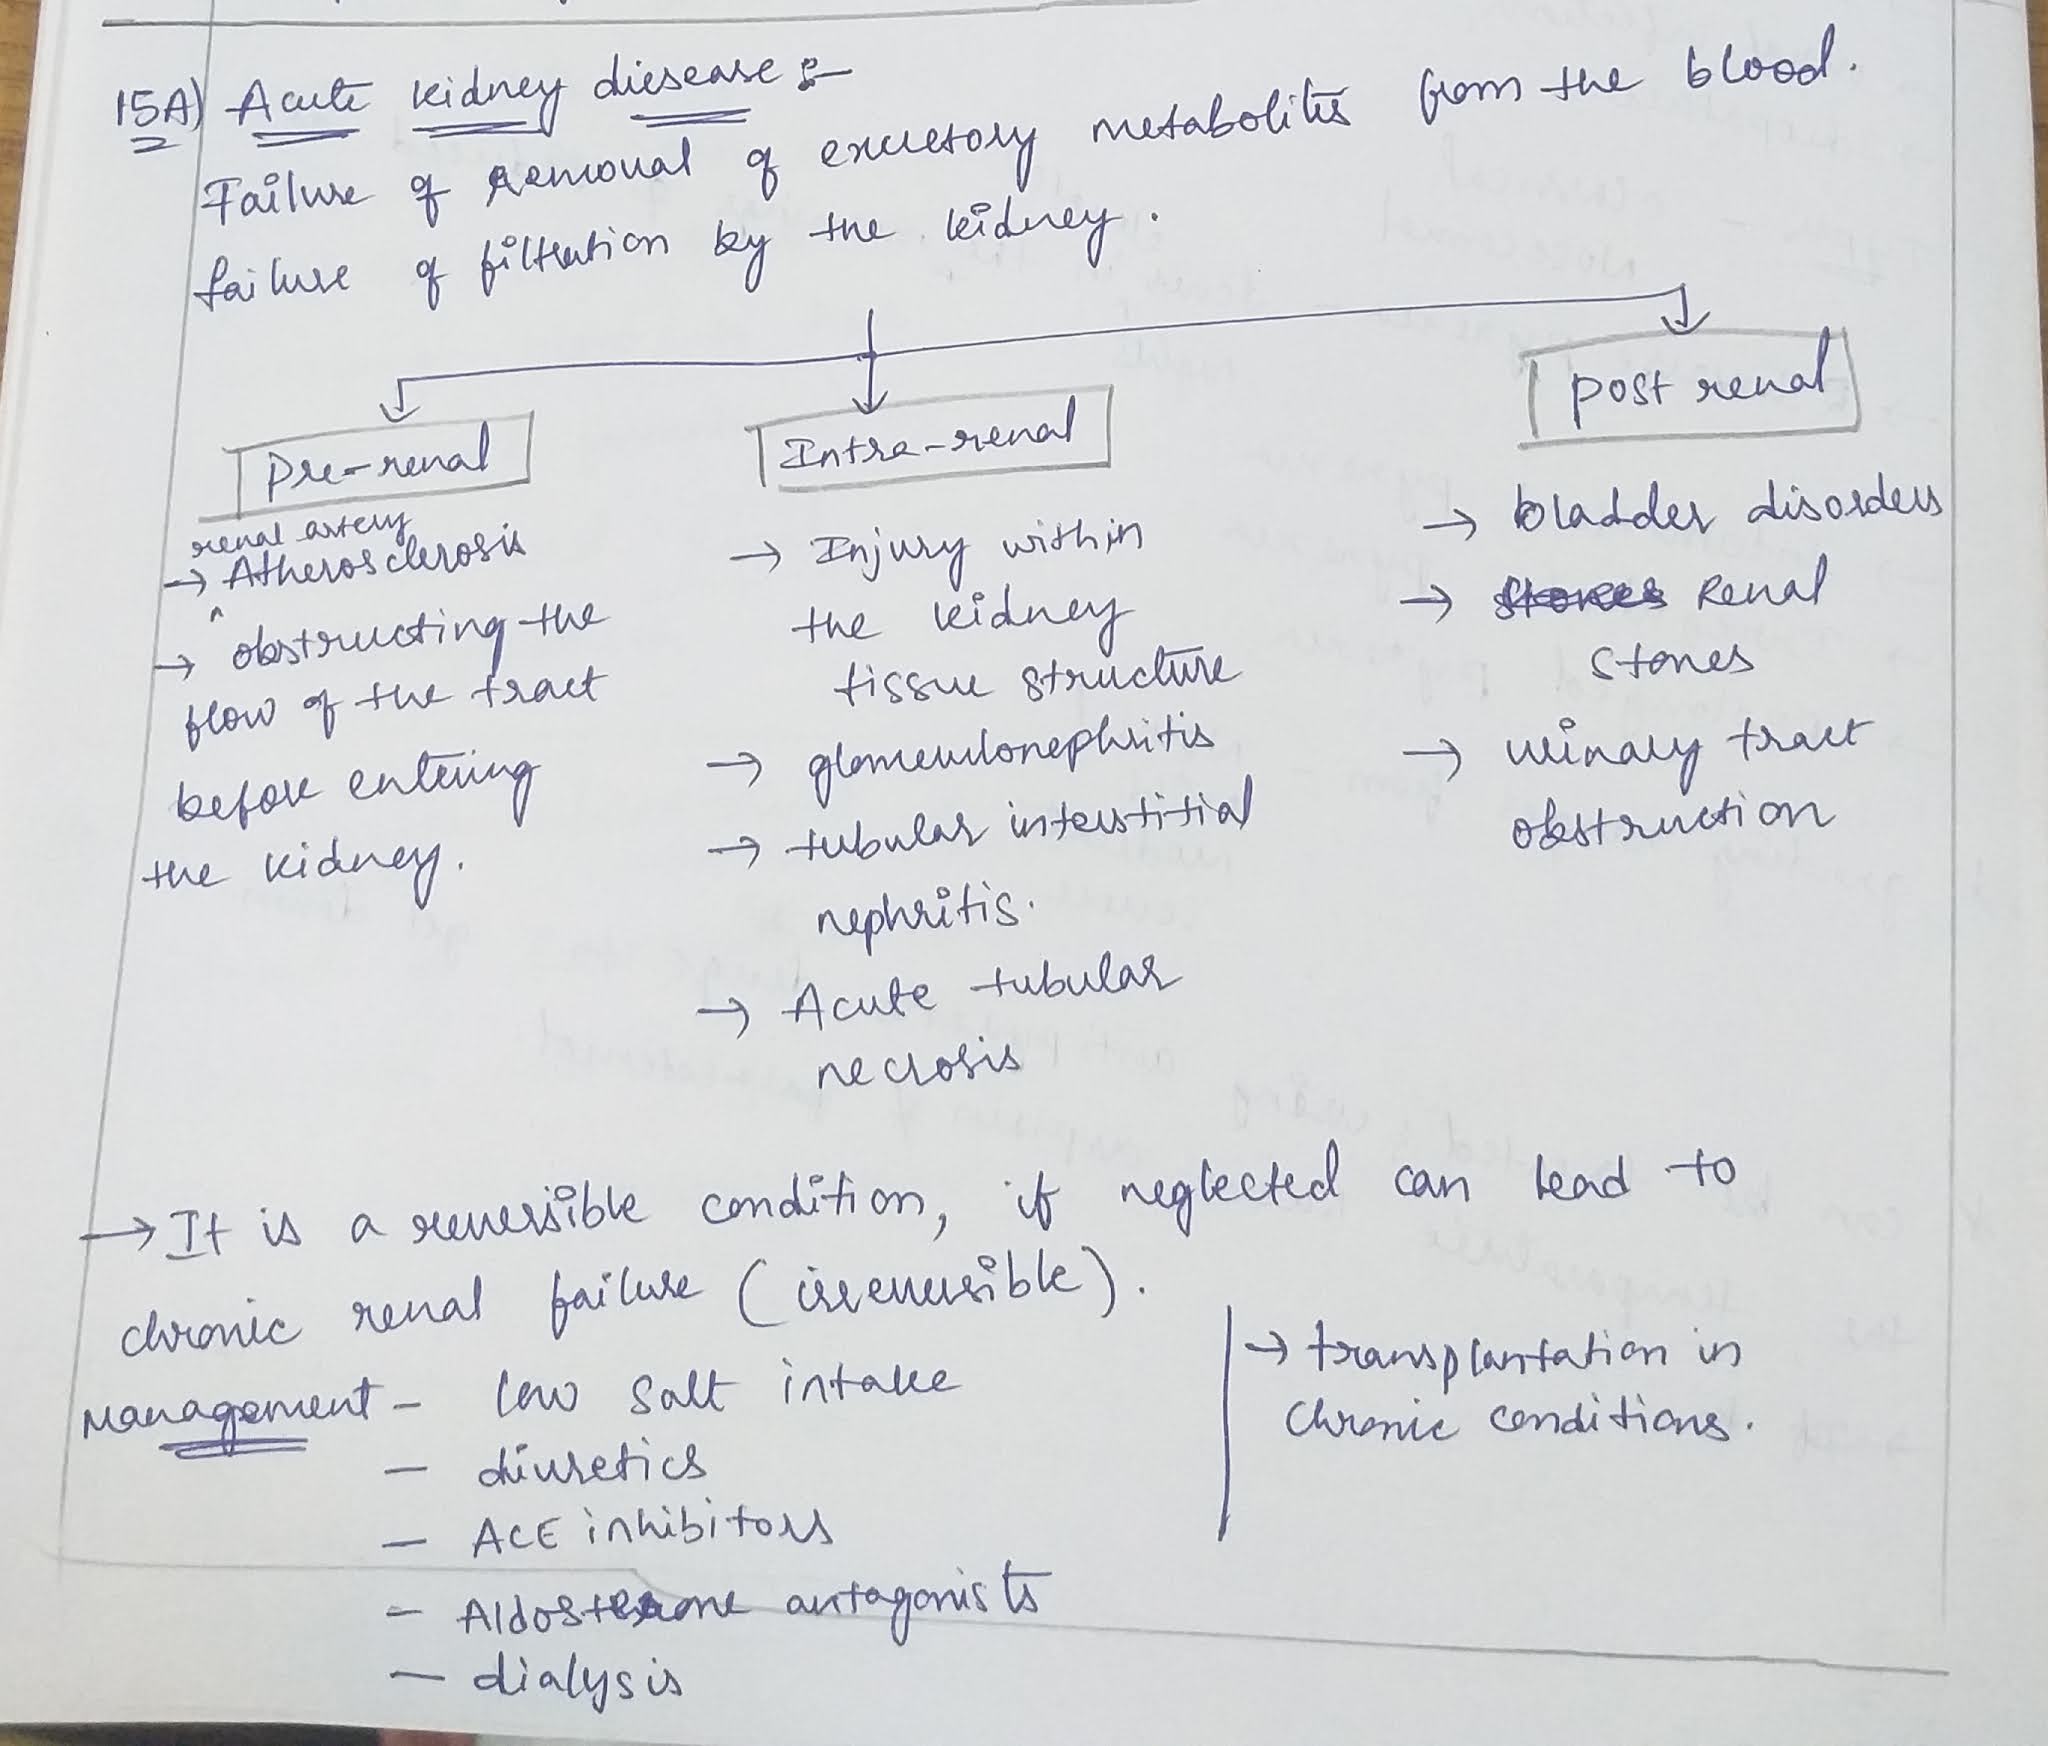 15A) Acute kidney diesease :-
Failure of removal of excretory metabolites from the blood.
failure of filtration by the kidney.
Pre-renal
renal artery
→ Atherosclerosis
^
→ obstructing the
flow of the tract
before entering
the kidney.
Intra-renal
→ Injury within
the kidney
tissue structure
→ glomerulonephritis
→ tubular interstitial
nephritis.
→ Acute tubular
necrosis
post renal
→ bladder disorders
→ stones Renal
stones
→ urinary tract
obstruction
→ It is a reversible condition, if neglected can lead to
chronic renal failure (irreversible).
Management - low salt intake
- diuretics
- ACE inhibitors
- Aldosterone antagonists
- dialysis
→ transplantation in
Chronic conditions.